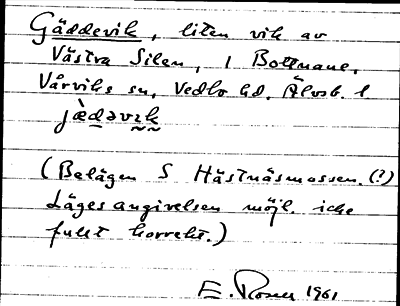 Gäddevik, liten vik av
Västra Silen, i Bottnane,
Vårviks sn, Vedbo hd. Älvsb. l.
jædəvɪk
(Belägen S Hästnäsmossen. (?)
Lägesangivelsen möjl. icke
fullt korrekt.)
E. Rosner 1961